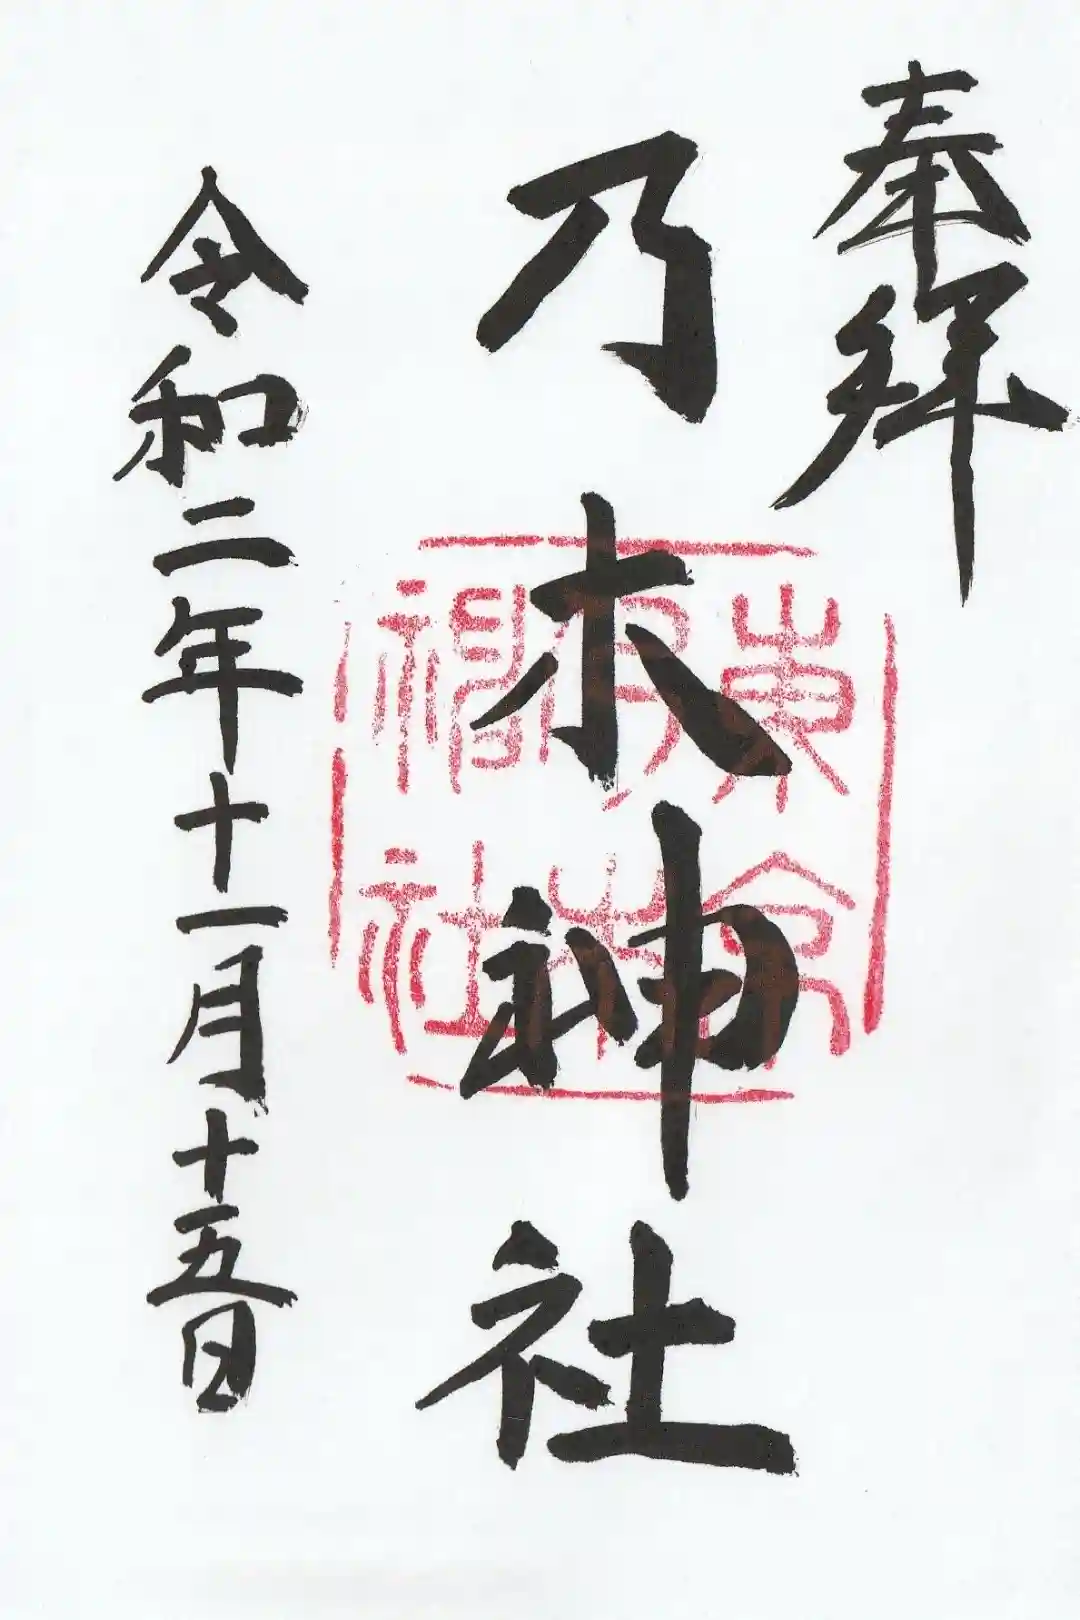 奉拝
乃木神社
東京
乃木
神社
令和二年十一月十五日